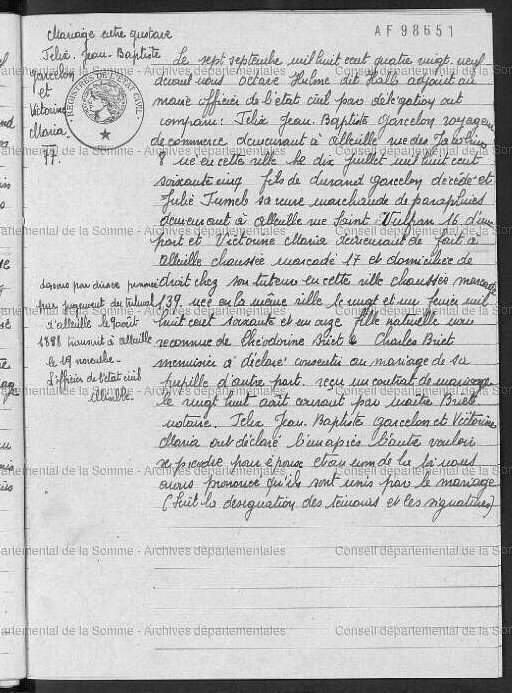 AF98651
Mariage entre Gustave
Felix Jean-Baptiste
Garcelon
et
Victorine
Maria
77.
Le sept septembre mil huit cent quatre vingt neuf
devant nous Octave Hulme dit Hall adjoint au
maire officier de l'état civil par délégation ont
comparu: Felix Jean-Baptiste Garcelon voyageur
de commerce demeurant à Abbeville rue des
8 né en cette ville le dix juillet mil huit cent
soixante cinq fils de durand Garcelon décédé et
Julie sa veuve marchande de parapluies
demeurant à Abbeville rue Saint Vulfran 16 d'une
part et Victorine Maria demeurant de fait à
Abbeville chaussée marcadé 17 et domiciliée de
droit chez son tuteur en cette ville chaussée marcadé
139 née en la même ville le vingt et un février mil
huit cent soixante et onze fille naturelle non
reconnue de Théodorine Briet Charles Briet
menuisier a déclaré consentir au mariage de sa
pupille d'autre part. reçu un contrat de mariage
le vingt huit août courant par maître
notaire. Felix Jean Baptiste Garcelon et Victorine
Maria ont déclaré l'un après l'autre vouloir
se prendre pour époux et au nom de la loi nous
avons prononcé qu'ils sont unis par le mariage
(Suit la designation des témoins et les signatures)
dissous par divorce prononcé
par jugement du tribunal
d'Abbeville le août
1898 transcrit à Abbeville
le 19 novembre
L'officier de l'état civil
Conseil départemental de la Somme - Archives départementales